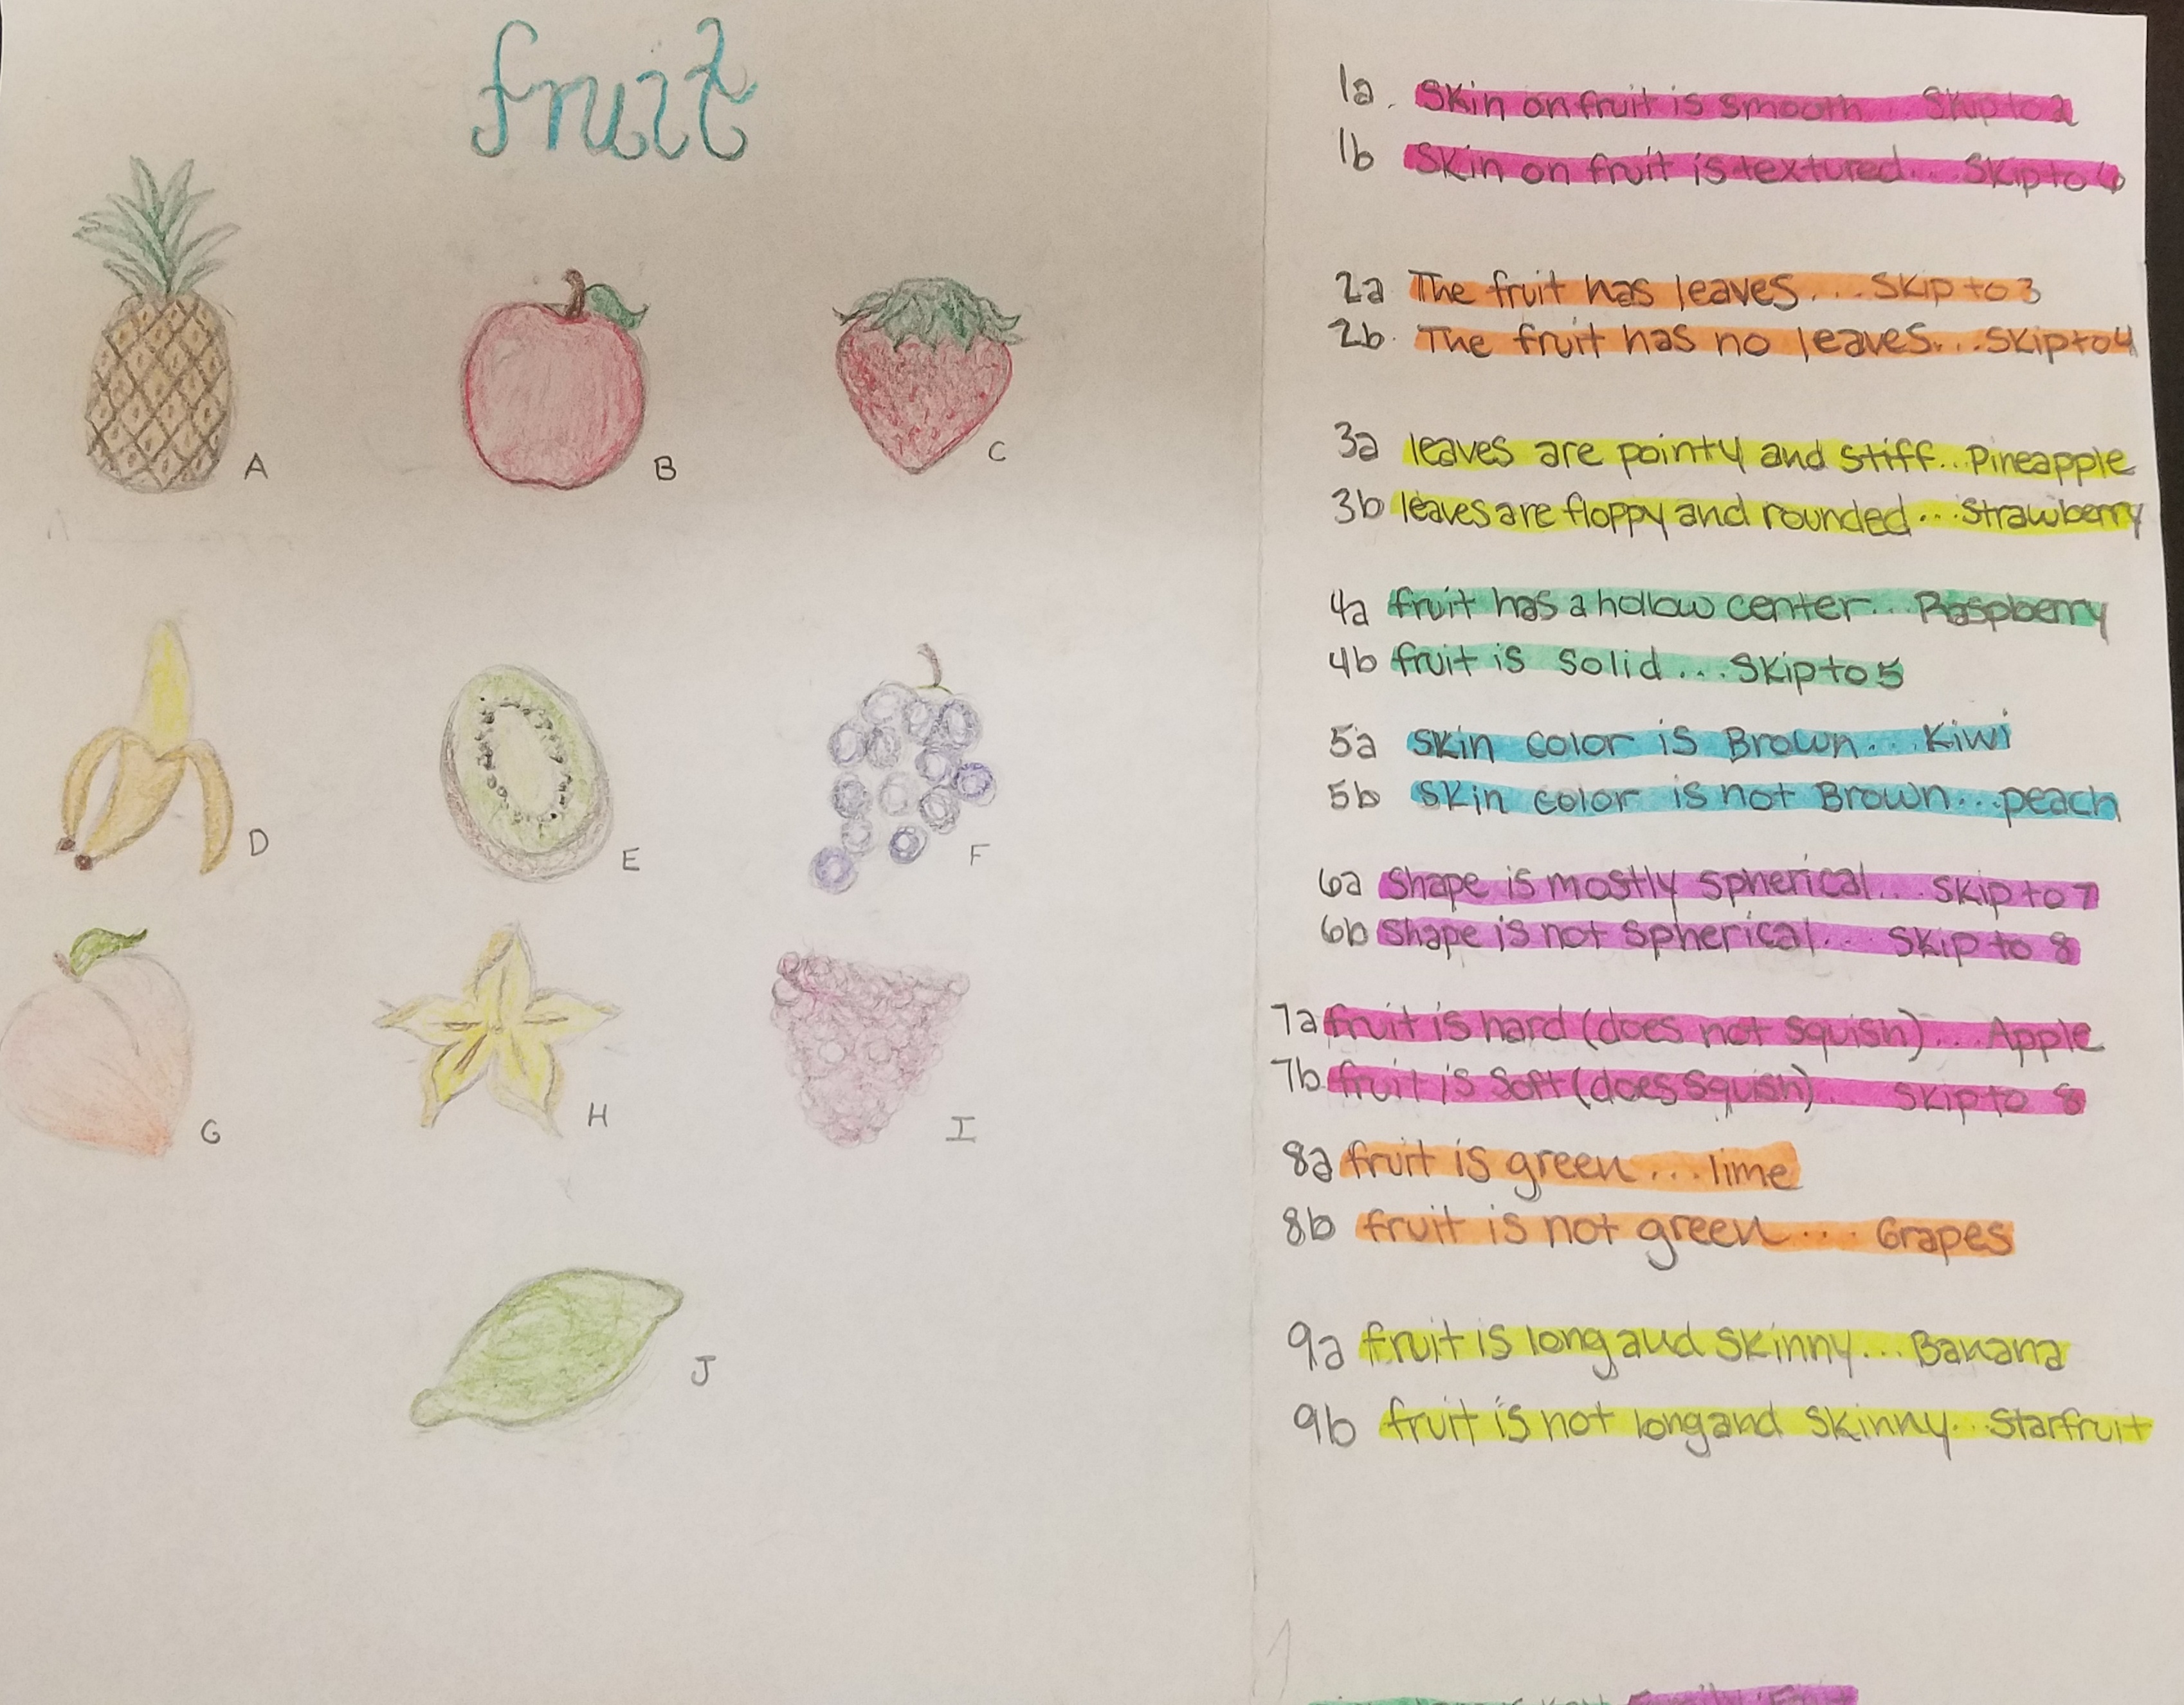 fruit
A
B
C
D
E
F
G
H
I
J
1a. Skin on fruit is smooth... Skip to 2
1b Skin on fruit is textured... Skip to 6
2a The fruit has leaves.... Skip to 3
2b. The fruit has no leaves... Skip to 4
3a leaves are pointy and stiff.. Pineapple
3b leaves are floppy and rounded... Strawberry
4a fruit has a hollow center... Raspberry
4b fruit is solid... Skip to 5
5a Skin color is Brown... Kiwi
5b Skin color is not Brown... peach
6a Shape is mostly spherical... Skip to 7
6b Shape is not spherical... Skip to 8
7a fruit is hard (does not squish)... Apple
7b fruit is soft (does squish)... Skip to 8
8a fruit is green... lime
8b fruit is not green... Grapes
9a fruit is long and skinny... Banana
9b fruit is not long and skinny.. Starfruit